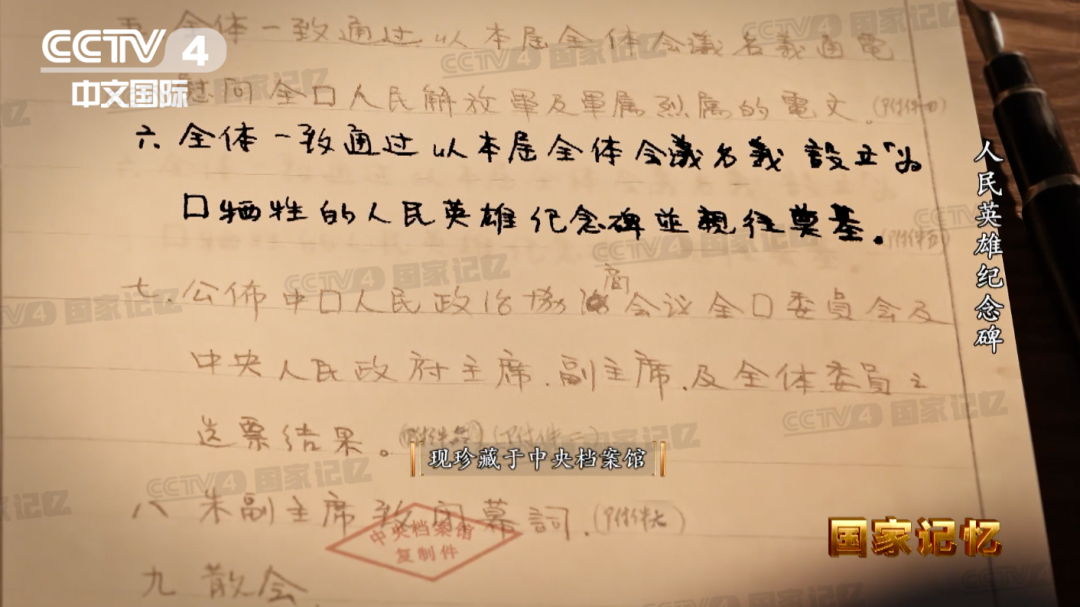 CCTV 4
中文国际
五、全体一致通过以本届全体会議名義通電
慰问全囗人民解放軍及軍属烈属的電文。(附件四)
六、全体一致通过以本届全体会議名義設立「为
囗牺牲的人民英雄纪念碑並親往奠基。(附件五)
七、公佈中囗人民政治協商会议全囗委員会及
中央人民政府主席、副主席、及全体委員之
选票结果。
八、朱副主席致闭幕詞.(附件七)
九、散会
人民英雄纪念碑
现珍藏于中央档案馆
中央档案馆
复制件
国家记忆
CCTV4 国家记忆